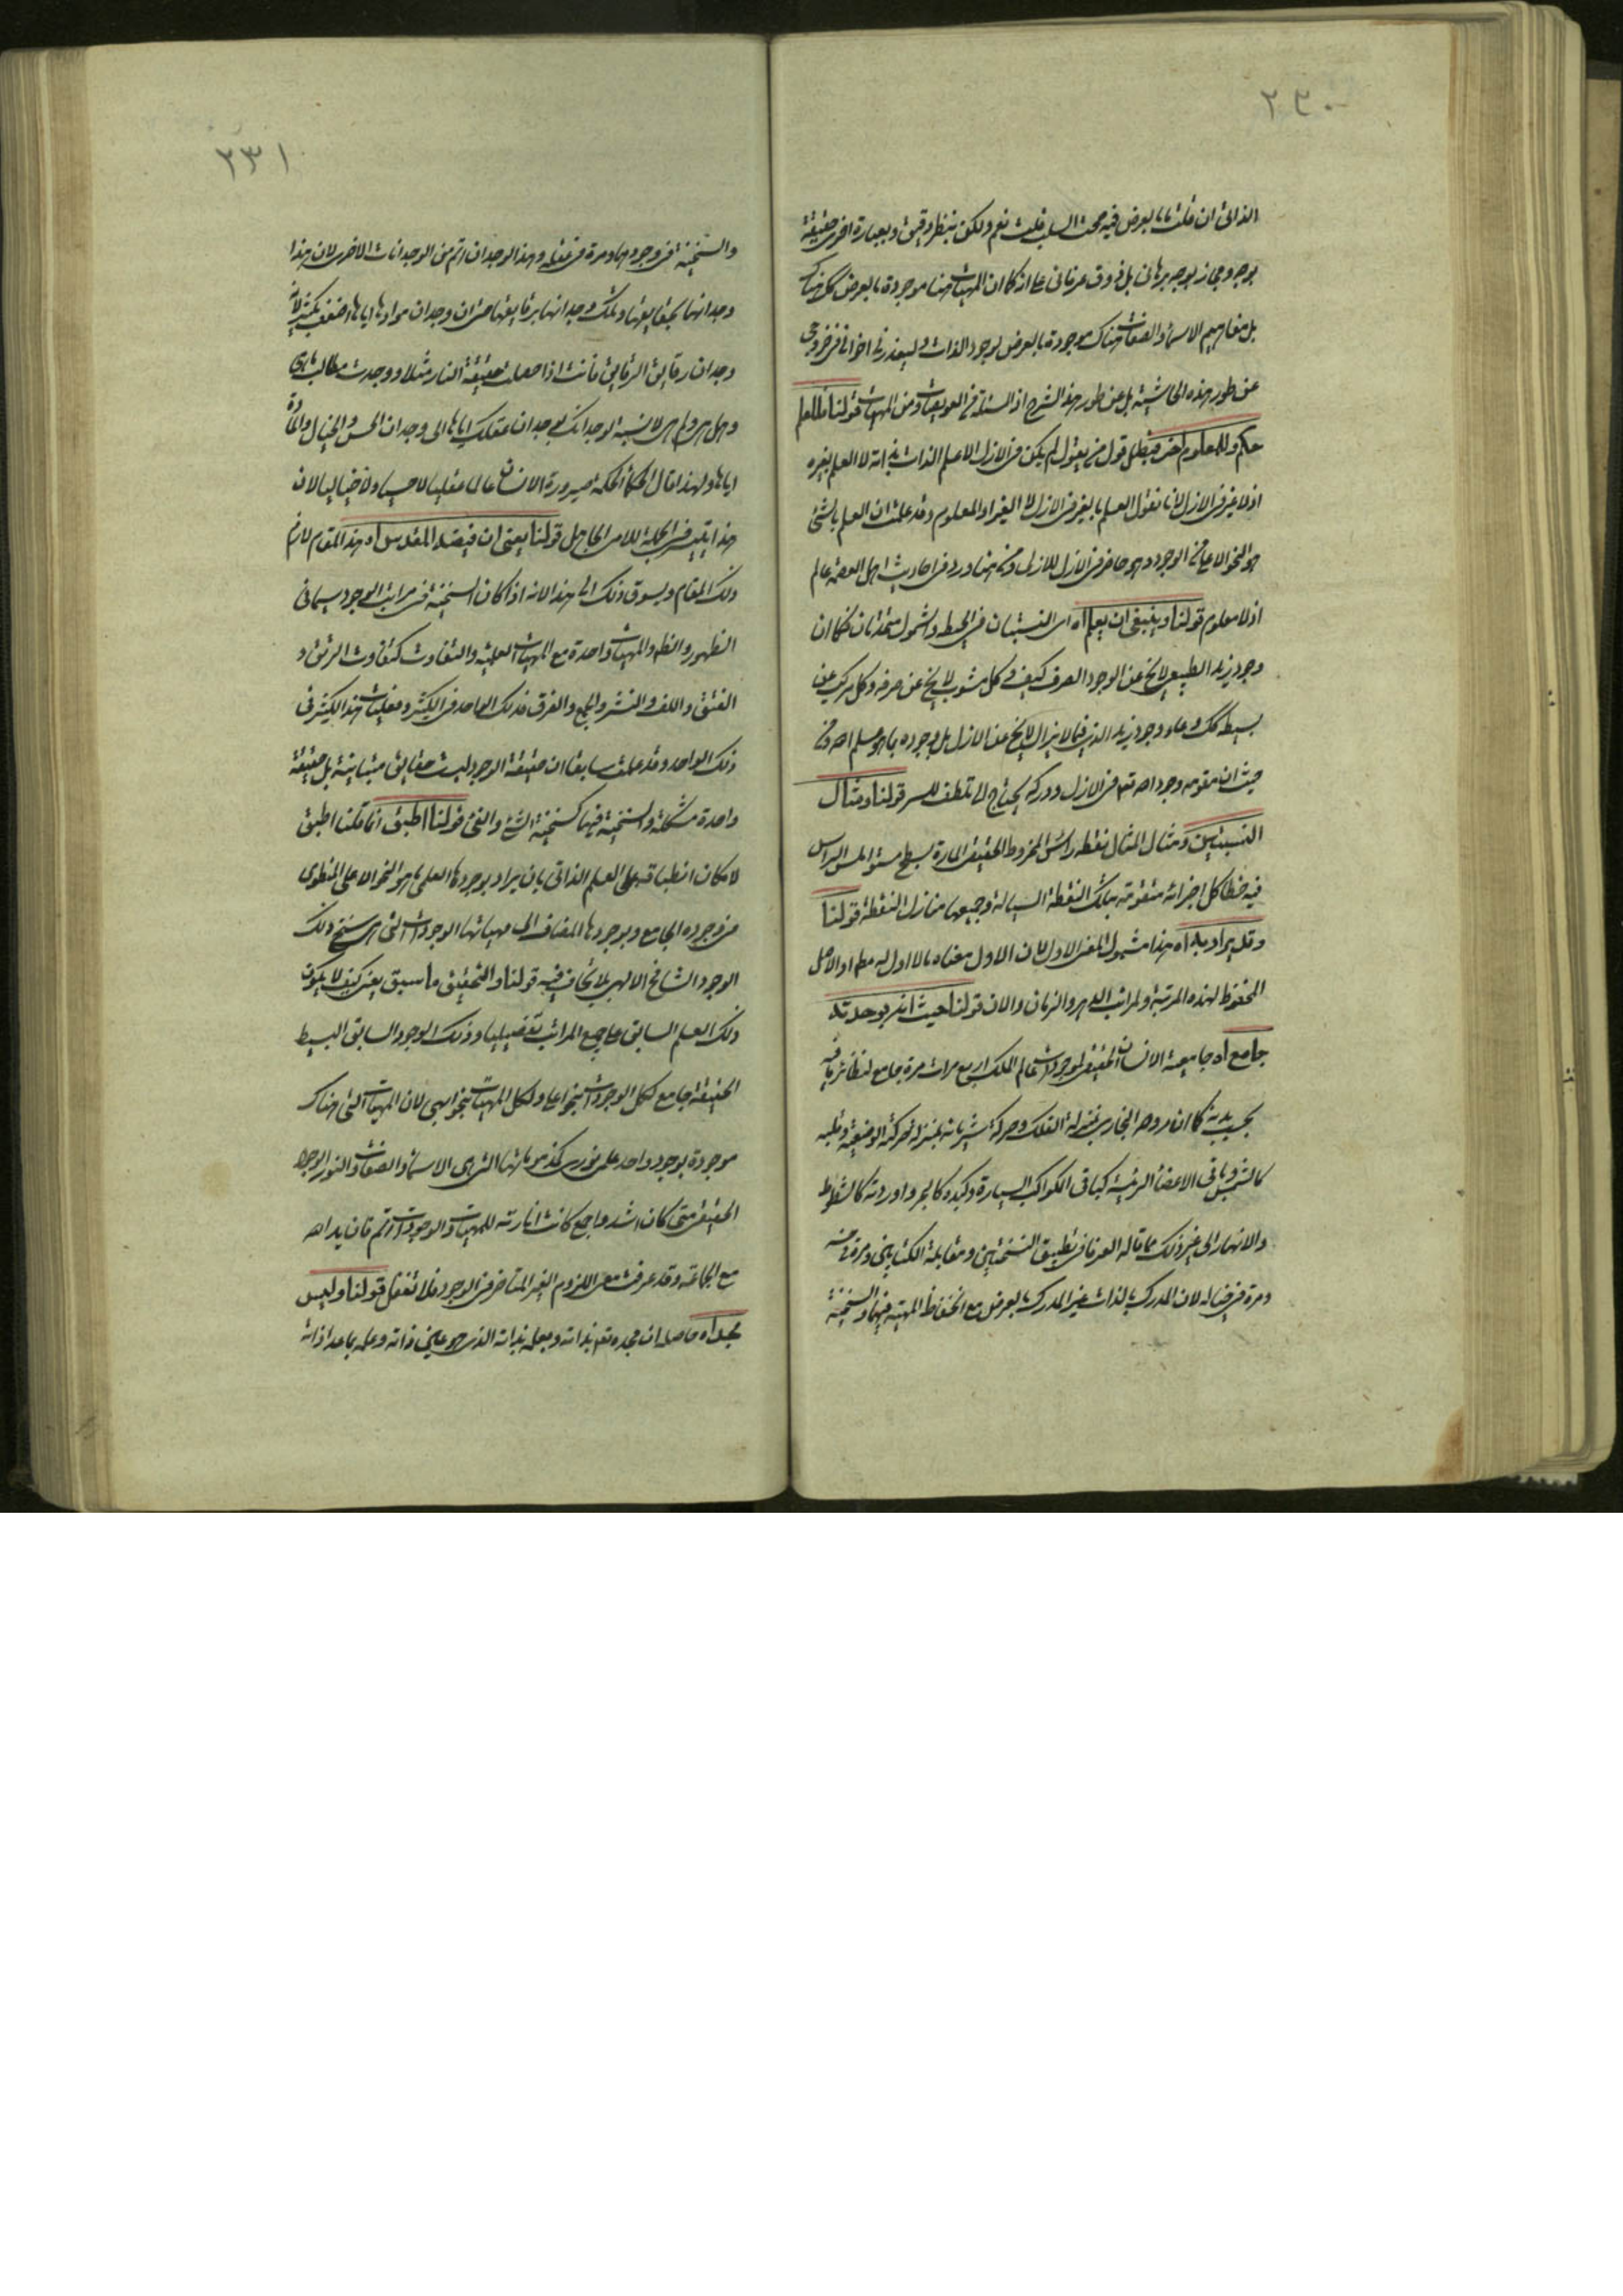 ٢٣٠
الذاتى ان قلت ما بالعرض فيه صحت السلب قلت نعم ولكن بنظر دقيق وبعبارة اخرى حقيقة
بوجه ومجاز بوجه برهانى بل ذوق عرفانى على انه كما ان المهيات هنا موجودة بالعرض كك هناك
بل مفاهيم الاسماء والصفات هناك موجودة بالعرض لوجود الذات وليعذرنى اخوانى فى خروجى
عن طور هذه الحاشية بل عن طور هذا الشرح اذ المسئلة من العويصات ومن المهمات قولنا فللعلم
حكم وللمعلوم اخر فبطل قول من يقول لم يكن فى الازل الا علم الذات بذاته لا العلم بغيره
اذ لا غير فى الازل لانا نقول العلم بالغير فى الازل لا الغير اذ المعلوم وقد علمت ان العلم بالشئ
هو النحو الاعلى من الوجود وهو حاضر فى الازل للازل ومن هنا ورد فى احاديث اهل العصمة عالم
اذ لا معلوم قولنا وينبغى ان يعلم اه اى النسبتان فى الحيطة والشمول متحدتان فكما ان
وجود زيد الطبيعى لا يخ عن الوجود الصرف كيف وكل مشوب لا يخ عن صرفه وكل مركب عن
بسيطه كك وعاء وجود زيد الذى فيما لا يزال لا يخ عن الازل بل وجوده بما هو علم الله ومن
حيث ان مقومه وجود الله تع فى الازل ودركه يحتاج الى تلطف للسر قولنا ومثال
النسبتين ومثال المثال نقطة راس المخروط الحقيقى المارة بسطح مستو الملس الراس
فيه خطا كل اجزائه متقومة بتلك النقطة السيالة وجميعها منازل النقطة قولنا
وقل يراد به اه هذا مشمول المعنى الاول لان الاول معناه ما لا اول له مط او الاصل
المحفوظ لهذه المرتبة ولمراتب الدهر والزمان والان قولنا حيث انه بوحدته
جامع اه جامعية الانسان الحقيقى لموجودات عالم الملك اربع مرات مرة جامع لنظائر ما فيه
بحسب بدنه كما ان روحه البخارى بمنزلة الفلك وحركة شريانه بمنزلة حركته الوضعية وقلبه
كالشمس وباقى الاعضاء الرئيسة كباقى الكواكب السيارة وكبده كالبحر واوردته كالشطوط
والانهار الى غير ذلك مما قاله العرفا فى تطبيق النسختين ومقابلة الكتابين ومرة فى حسه
ومرة فى خياله لان المدرك بالذات غير المدرك بالعرض مع انحفاظ المهية فيهما والسنخية
٢٣١
والسنخية فى وجوديهما ومرة فى عقله وهذا الوجدان اتم من الوجدانات الاخرى لان هذا
وجدانها بحقايقها وتلك وجدانها برقايقها حتى ان وجدان موادها اياها اضعف بكثير لانه
وجدان رقايق الرقايق فانت اذا حصلت حقيقة النار مثلا ووجدت مطالب ما هى
وهل هى ولم هى لا نسبة لوجدانك بوجدان عقلك اياها الى وجدان الحس والخيال والمادة
اياها ولهذا قال الحكماء الحكمة صيرورة الانسان عالما عقليا لا حسيا ولا خياليا لان
هذا يتيسر فى الجملة للامى الجاهل قولنا يعنى ان فيضه المقدس اه هذا المقام لازم
ذلك المقام ويسوق ذلك الى هذا لانه اذا كان السنخية فى مراتب الوجود سيما فى
الظهور والظل والمهيات واحدة مع المهيات العلمية والتفاوت كتفاوت الرتق و
الفتق واللف والنشر والجمع والفرق فذلك الواحد فى الكثير وفعليات هذا الكثير فى
ذلك الواحد وقد علمت سابقا ان حقيقة الوجود ليست حقايق متباينة بل حقيقة
واحدة مشككة والسنخية فيها كسنخية الشئ والفئ قولنا اطبق انما قلنا اطبق
لامكان انطباقه على العلم الذاتى بان يراد بوجودها العلمى ما هو النحو الاعلى المنطوى
فى وجوده الجامع وبوجودها المضاف الى مهياتها الوجودات التى هى سنخ ذلك
الوجود الشامخ الالهى بلا تجاف فيه قولنا والتحقيق ما سبق يعنى كيف لا يكون
ذلك العلم السابق على جميع المراتب تفصيليا وذلك الوجود السابق البسيط
الحقيقة جامع لكل الوجودات بنحو اعلى ولكل المهيات بنحو ابهى لان المهيات التى هناك
موجودة بوجود واحد علمى نورى كملزوماتها التى هى الاسماء والصفات والنور الوجود
الحقيقى متى كان اشد واجمع كانت انارته للمهيات والوجودات اتم فان يد الله
مع الجماعة وقد عرفت معنى اللزوم الغير المتاخر فى الوجود فلا تغفل قولنا وليس
مجلاه حاصله ان مجده تع بذاته وبعلمه بذاته الذى هو عين ذاته وعلمه بما عدا ذاته